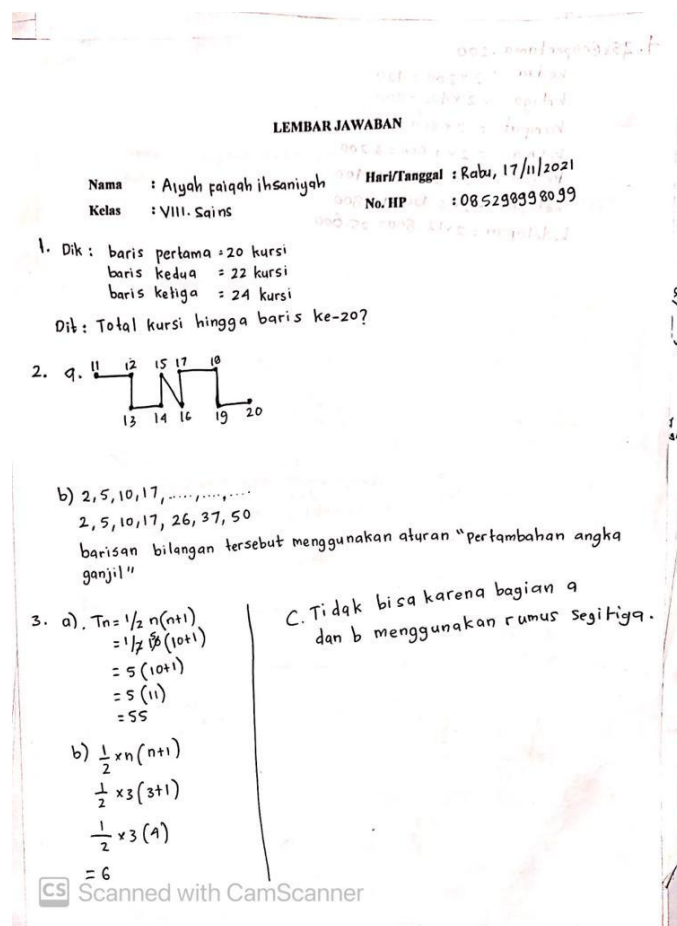 LEMBAR JAWABAN
Nama : Aiyah faiqah ihsaniyah
Hari/Tanggal : Rabu, 17/11/2021
Kelas : VIII. Sains
No. HP : 085298998099
1. Dik : baris pertama = 20 kursi
baris kedua = 22 kursi
baris ketiga = 24 kursi
Dit : Total kursi hingga baris ke-20?
2. a. 11 12 15 17 18
13 14 16 19 20
b) 2, 5, 10, 17, ....., ...., ....
2, 5, 10, 17, 26, 37, 50
barisan bilangan tersebut menggunakan aturan "pertambahan angka
ganjil"
3. a). Tn = 1/2 n(n+1)
= 1/2 10 (10+1)
= 5 (10+1)
= 5 (11)
= 55
b) 1/2 x n (n+1)
1/2 x 3 (3+1)
1/2 x 3 (4)
= 6
C. Tidak bisa karena bagian a
dan b menggunakan rumus segitiga.
CS Scanned with CamScanner